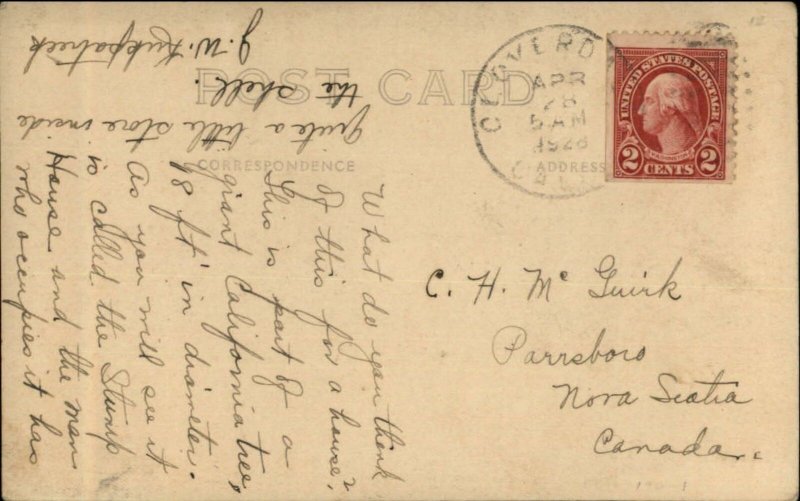 POST CARD
CORRESPONDENCE
ADDRESS
CLOVERD
APR
28
5 AM
1928
CAL
UNITED STATES POSTAGE
WASHINGTON
2 CENTS 2
What do you think
of this for a house?
This is part of a
giant California tree,
18 ft in diameter.
As you will see it
is called the Stump
House and the man
who occupies it has
quite a little store inside
the shell.
J. W. Kirkpatrick
C. H. Mc Guirk
Parrsboro
Nova Scotia
Canada.